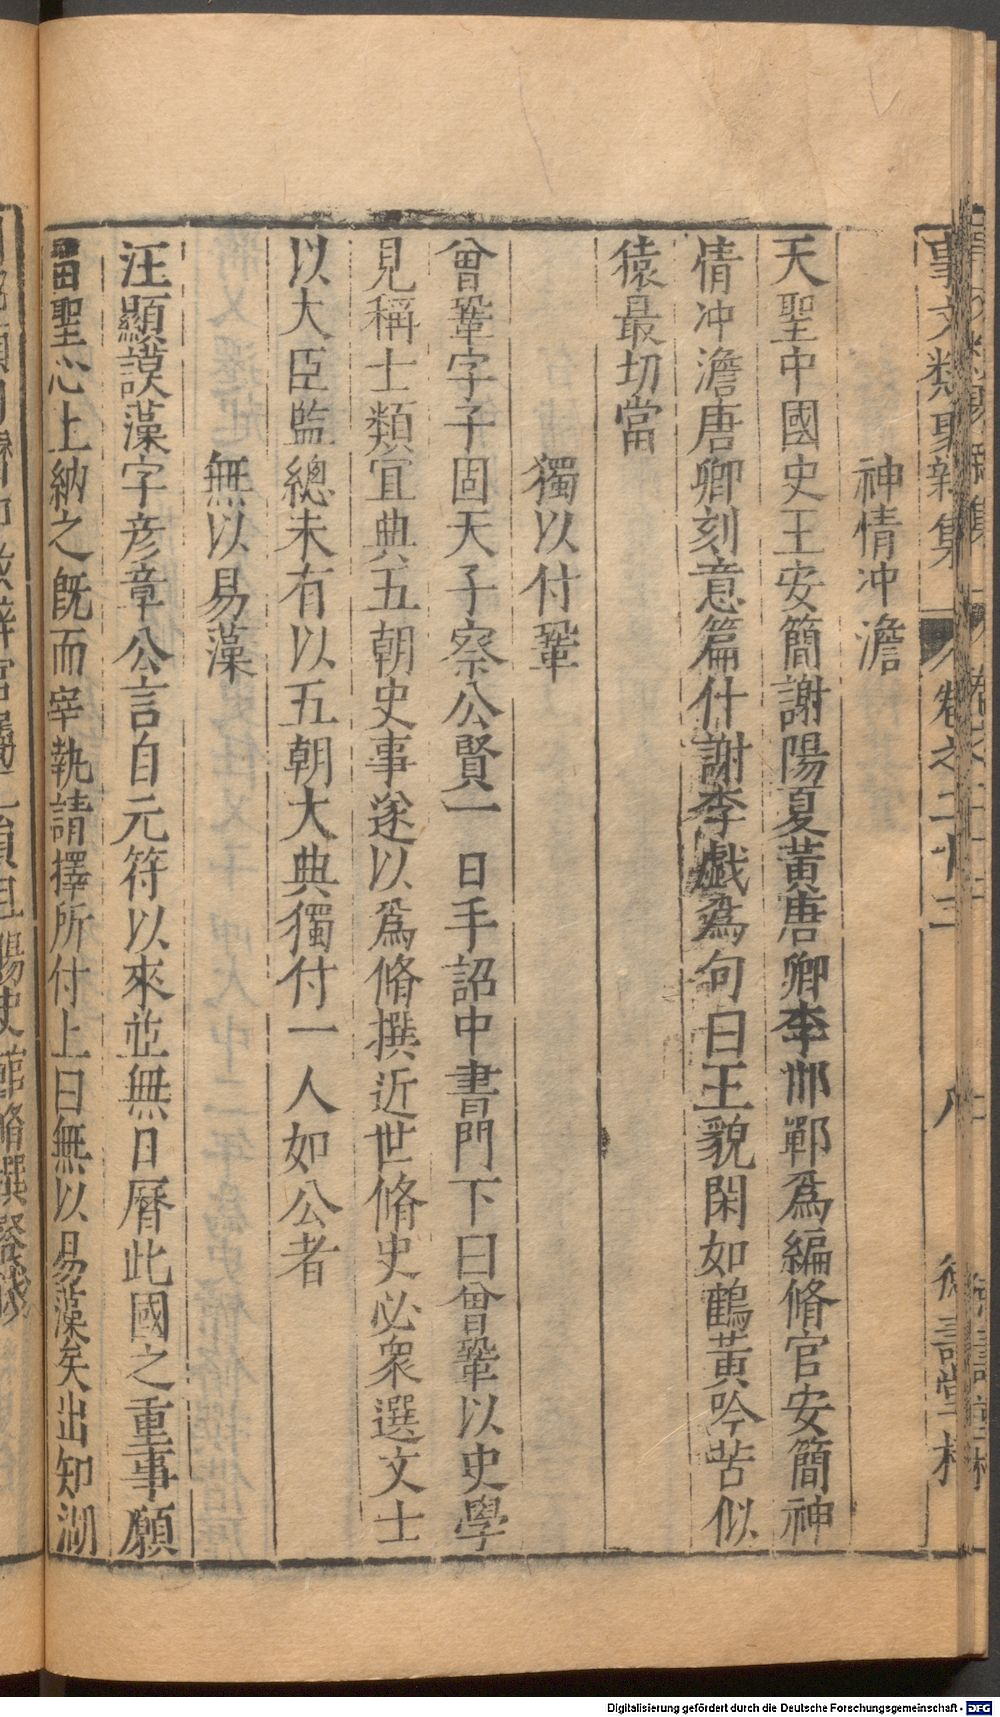 事文類聚新集 卷之二十三 八 德壽堂梓
神情冲澹
天聖中國史王安簡謝陽夏黃唐卿李邯鄲爲編脩官安簡神
情冲澹唐卿刻意篇什謝李戲爲句曰王貌閑如鶴黃吟苦似
猿最切當
獨以付鞏
曾鞏字子固天子察公賢一日手詔中書門下曰曾鞏以史學
見稱士類宜典五朝史事遂以爲脩撰近世脩史必衆選文士
以大臣監總未有以五朝大典獨付一人如公者
無以易藻
汪顯謨藻字彦章公言自元符以來並無日曆此國之重事願
畱聖心上納之旣而宰執請擇所付上曰無以易藻矣出知湖
Digitalisierung gefördert durch die Deutsche Forschungsgemeinschaft - DFG